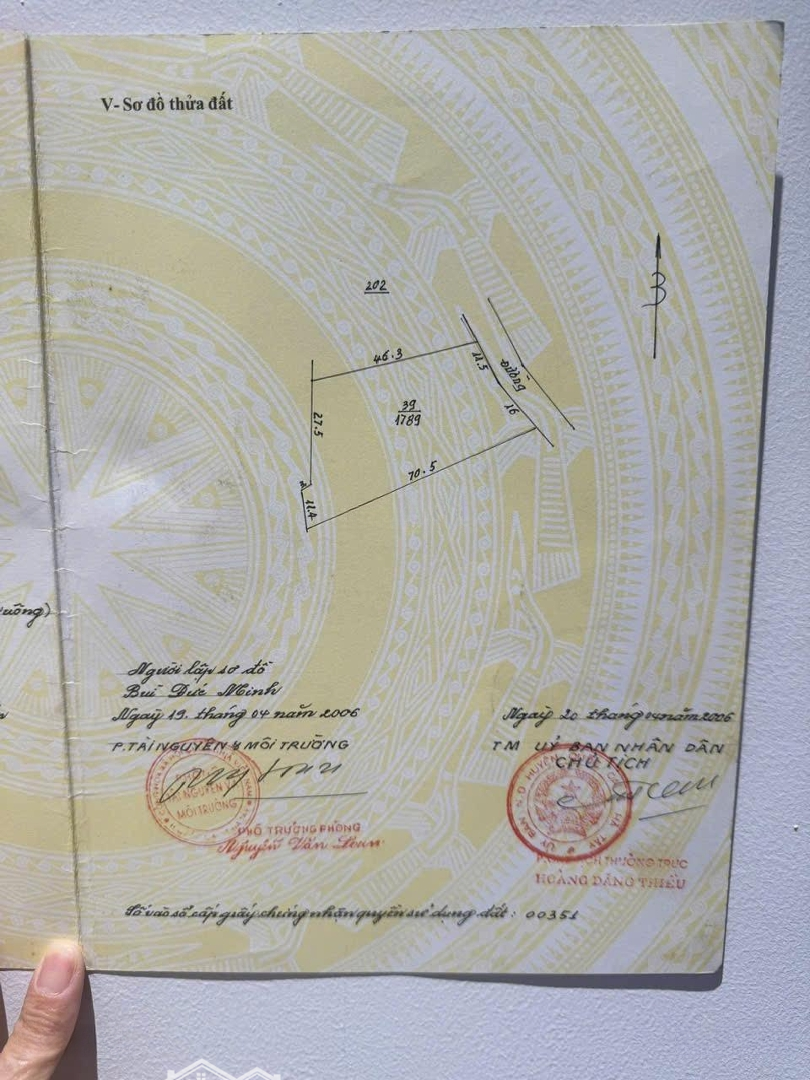 V- Sơ đồ thửa đất
202
46.3
11.5
Đường
16
39
1789
27.5
70.5
11.4
B
tường)
Người lập sơ đồ
Bùi Đức Minh
Ngày 19. tháng 04 năm 2006
Ngày 20 tháng 04 năm 2006
P. TÀI NGUYÊN & MÔI TRƯỜNG
TM UỶ BAN NHÂN DÂN
CHỦ TỊCH
TÀI NGUYÊN VÀ
MÔI TRƯỜNG
PHÓ TRƯỞNG PHÒNG
Nguyễn Văn Loan
THƯỜNG TRỰC
HOÀNG ĐĂNG THIẾU
Số vào sổ cấp giấy chứng nhận quyền sử dụng đất : 00351